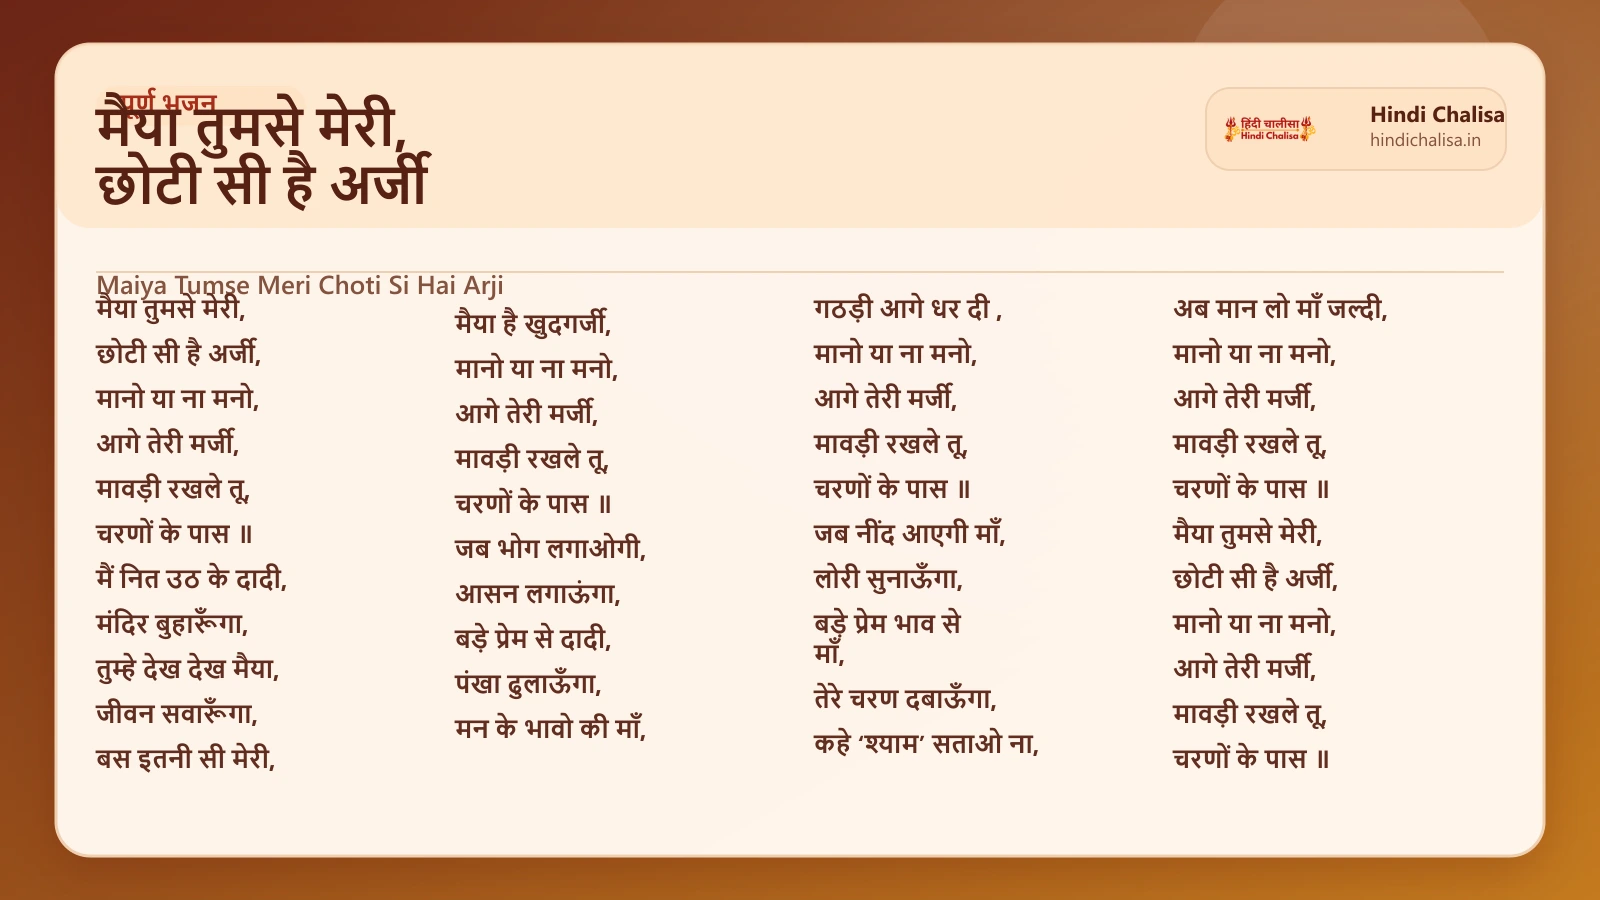 पूर्ण भजन
मैया तुमसे मेरी,
छोटी सी है अर्जी
हिंदी चालीसा
Hindi Chalisa
Hindi Chalisa
hindichalisa.in
Maiya Tumse Meri Choti Si Hai Arji
मैया तुमसे मेरी,
छोटी सी है अर्जी,
मानो या ना मनो,
आगे तेरी मर्जी,
मावड़ी रखले तू,
चरणों के पास ॥
मैं नित उठ के दादी,
मंदिर बुहारूँगा,
तुम्हे देख देख मैया,
जीवन सवारूँगा,
बस इतनी सी मेरी,
मैया है खुदगर्जी,
मानो या ना मनो,
आगे तेरी मर्जी,
मावड़ी रखले तू,
चरणों के पास ॥
जब भोग लगाओगी,
आसन लगाऊंगा,
बड़े प्रेम से दादी,
पंखा ढुलाऊँगा,
मन के भावो की माँ,
गठड़ी आगे धर दी ,
मानो या ना मनो,
आगे तेरी मर्जी,
मावड़ी रखले तू,
चरणों के पास ॥
जब नींद आएगी माँ,
लोरी सुनाऊँगा,
बड़े प्रेम भाव से
माँ,
तेरे चरण दबाऊँगा,
कहे ‘श्याम’ सताओ ना,
अब मान लो माँ जल्दी,
मानो या ना मनो,
आगे तेरी मर्जी,
मावड़ी रखले तू,
चरणों के पास ॥
मैया तुमसे मेरी,
छोटी सी है अर्जी,
मानो या ना मनो,
आगे तेरी मर्जी,
मावड़ी रखले तू,
चरणों के पास ॥